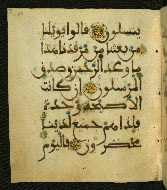 ينسلون قالوا يويلنا
من بعثنا من مرقدنا هذا
ما وعد الرحمن وصدق
المرسلون إن كانت
إلا صيحة وحدة
فإذا هم جميع لدينا
محضرون فاليوم